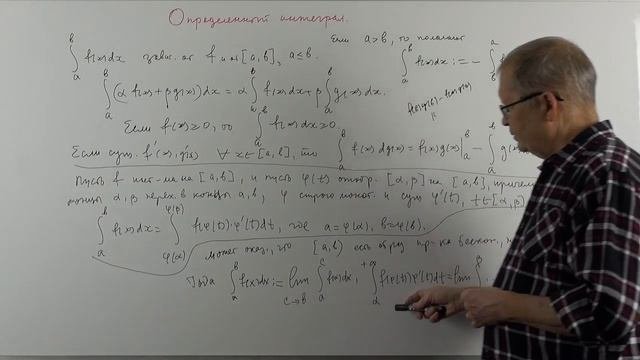 Определенный интеграл.
∫_a^b f(x)dx завис. от f и на [a, b], a ≤ b. Если a > b, то полагают
∫_a^b f(x)dx := − ∫_b^a
∫_a^b (α f(x) + β g(x))dx = α ∫_a^b f(x)dx + β ∫_a^b g(x)dx.
Если f(x) ≥ 0, то ∫_a^b f(x)dx ≥ 0.
Если сущ. f'(x), g'(x) ∀ x ∈ [a, b], то ∫_a^b f(x) dg(x) = f(x)g(x)|_a^b − ∫_a^b g(x)
Пусть f на [a, b], и пусть φ(t) отобр. [α, β] на [a, b], причем
концы α, β перех. в концы a, b, φ строго монот. и сущ φ'(t), t ∈ [α, β]
∫_a^b f(x)dx = ∫ f(φ(t))·φ'(t)dt, где a = φ(α), b = φ(β).
может оказ., что [a, b) есть образ
Тогда ∫_a^b f(x)dx := lim_{c→b} ∫_a^c f(x)dx, ∫_α^{+∞} f(φ(t))φ'(t)dt = lim ∫